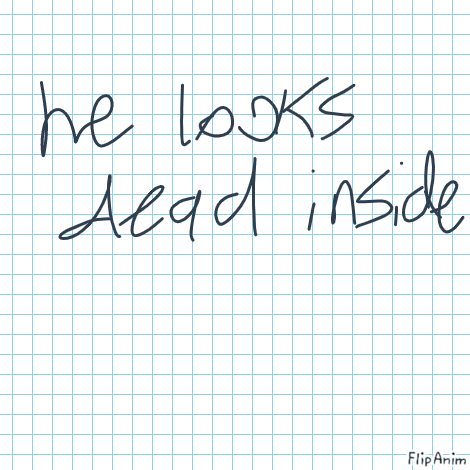 he looks
dead inside
FlipAnim